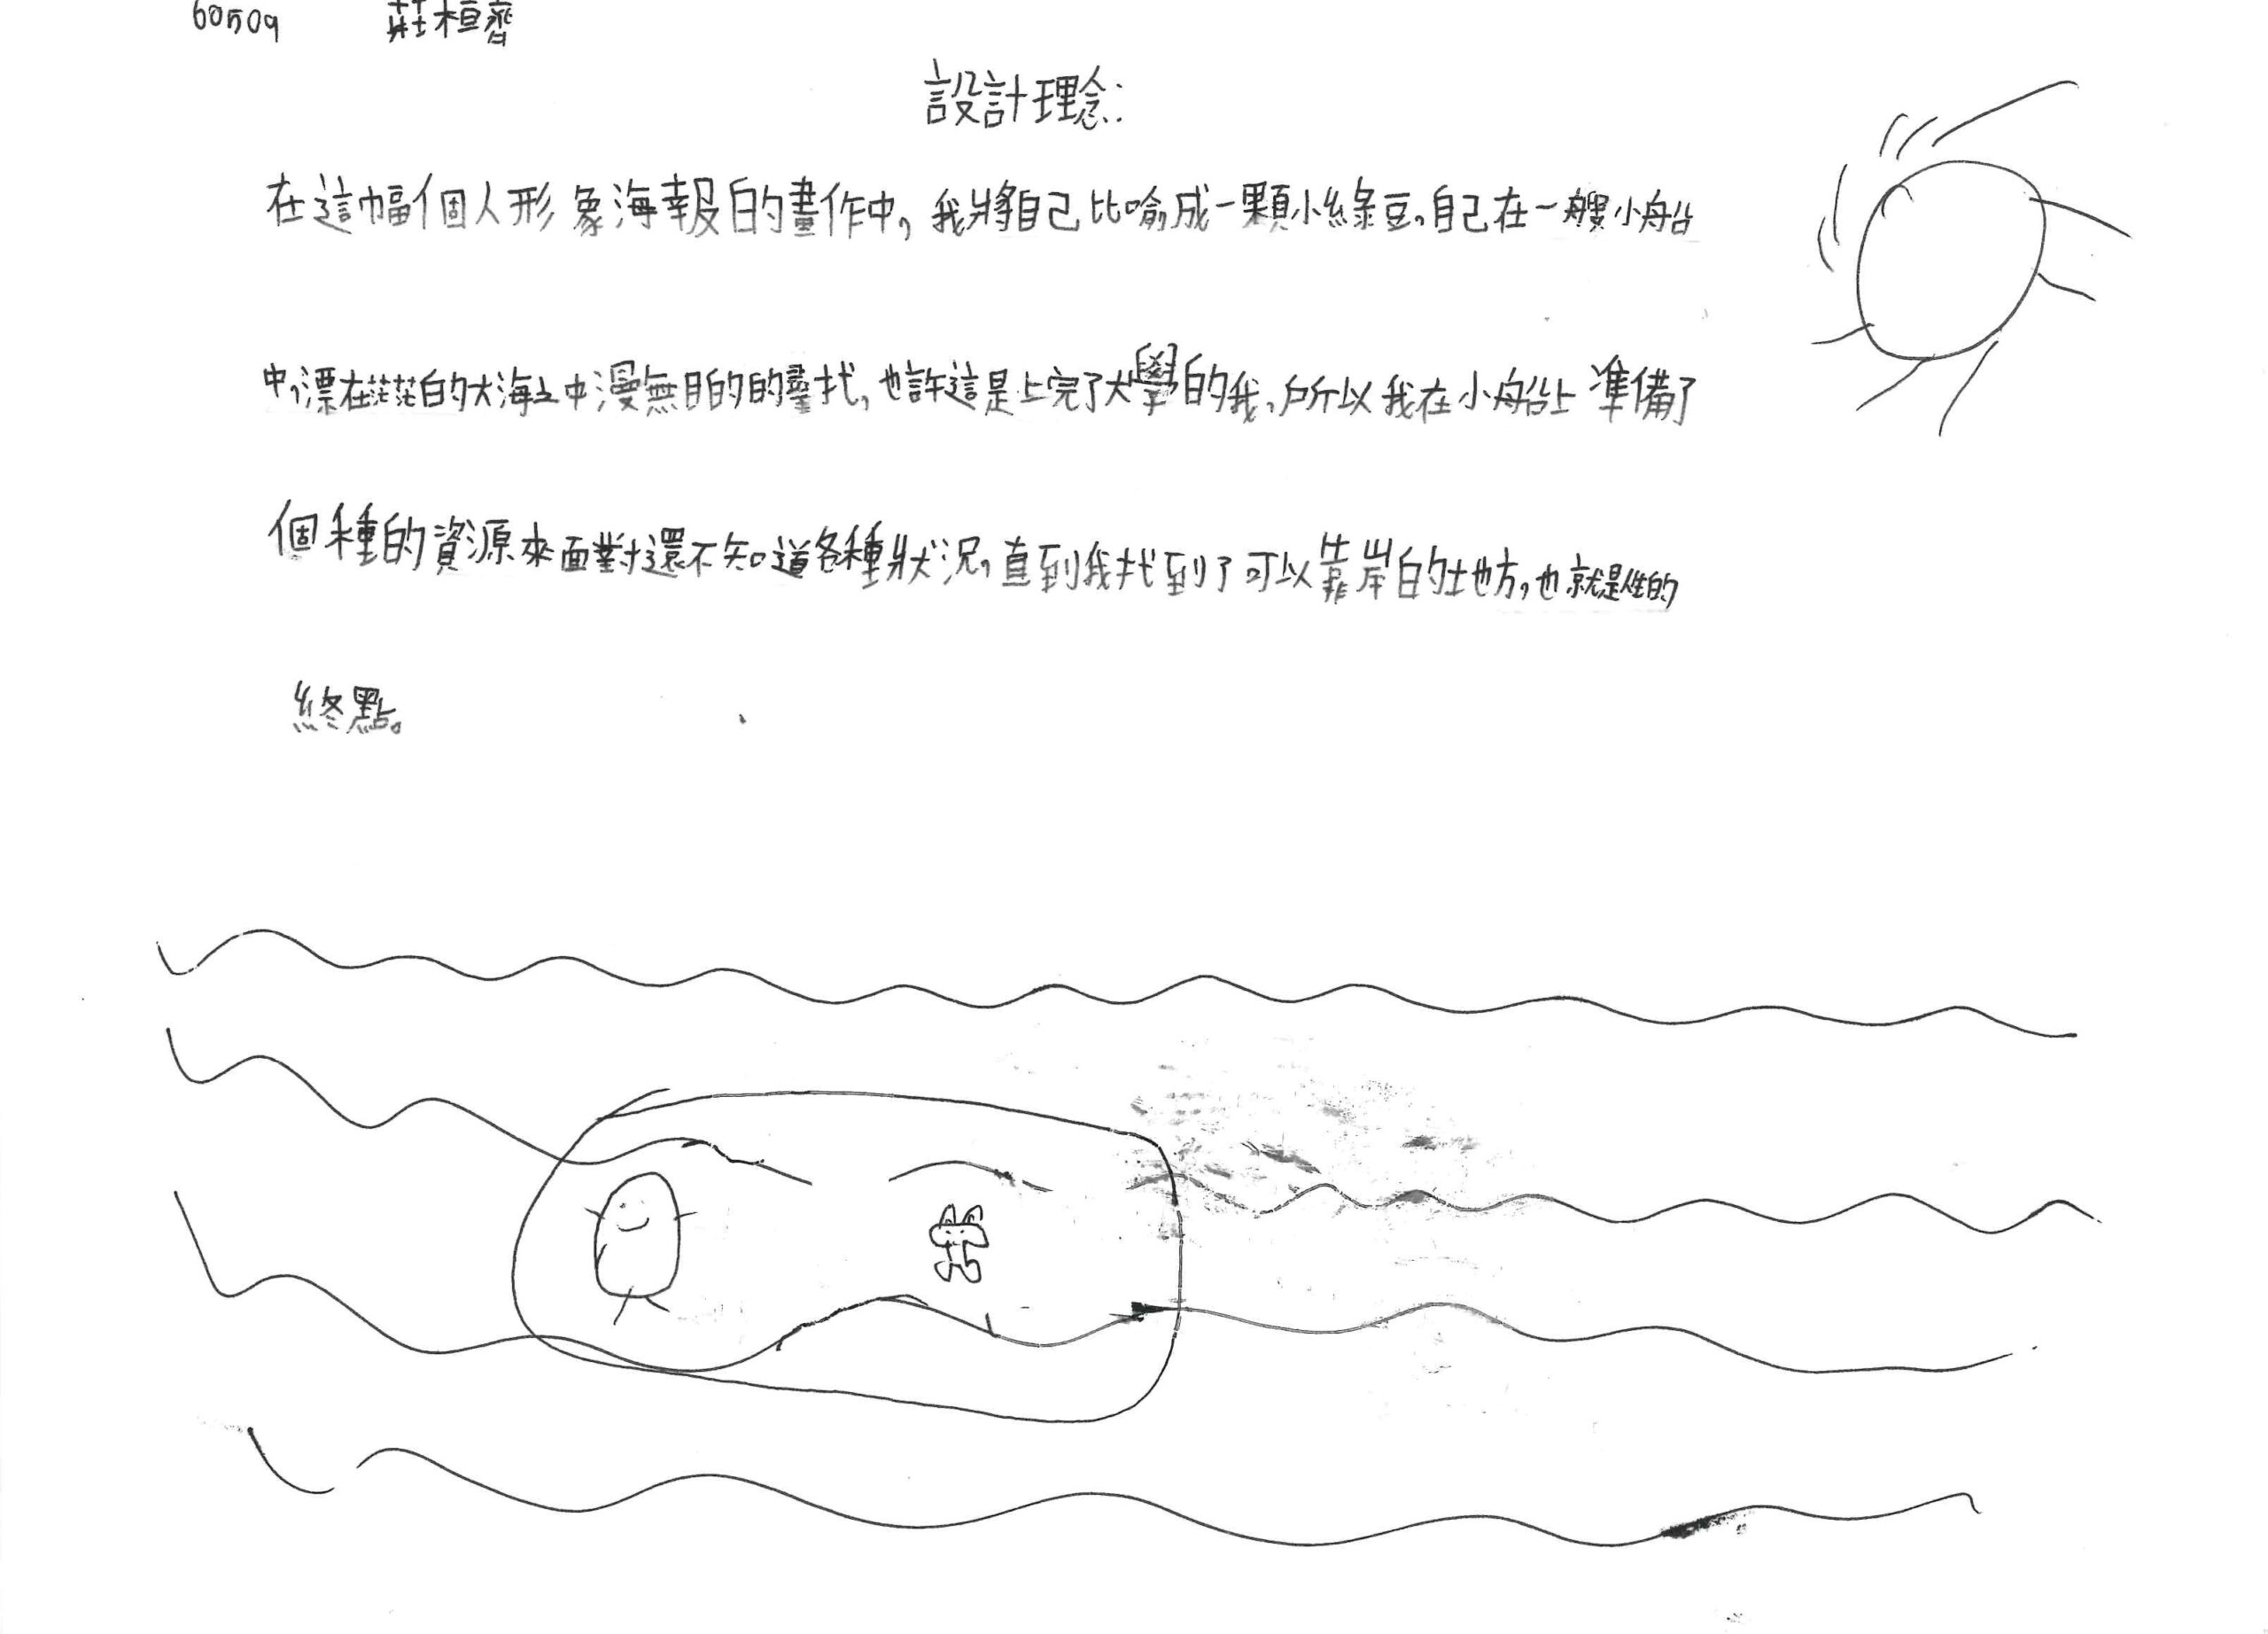 60509 莊桓齊
設計理念:
在這幅個人形象海報的畫作中,我將自己比喻成一顆小綠豆,自己在一艘小船
中,漂在茫茫的大海之中漫無目的的尋找,也許這是上完了大學的我,所以我在小船上準備了
個種的資源來面對還不知道各種狀況,直到我找到了可以靠岸的地方,也就是性的
終點。